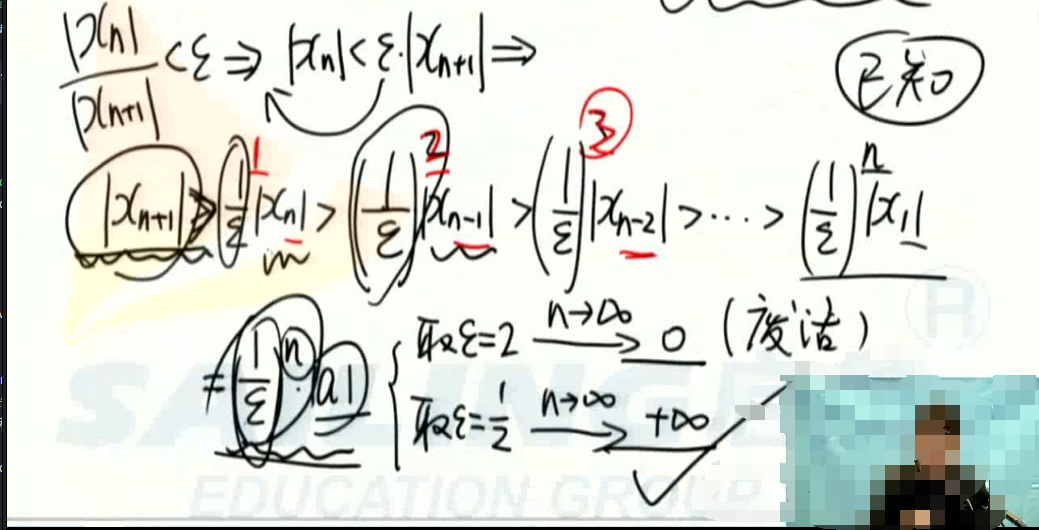 |xₙ|/|xₙ₊₁| < ε ⇒ |xₙ| < ε·|xₙ₊₁| ⇒
已知
|xₙ₊₁| > (1/ε)¹|xₙ| > (1/ε)²|xₙ₋₁| > (1/ε)³|xₙ₋₂| > ··· > (1/ε)ⁿ|x₁|
= (1/ε)ⁿ·|a|
取ε=2 n→∞ → 0 (废话)
取ε=1/2 n→∞ → +∞ ✓
EDUCATION GROUP
®